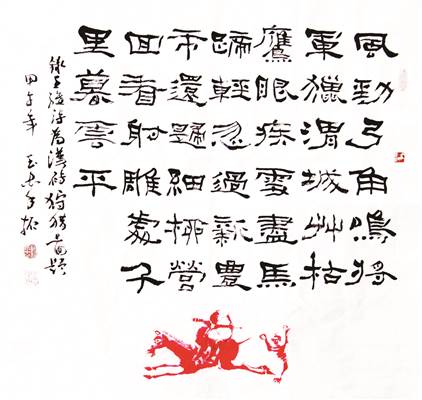 風勁弓角鳴將
軍獵渭城艸枯
鷹眼疾雪盡馬
蹄輕忽過新豊
市還歸細柳營
回看射雕處千
里暮雲平
錄王維詩為漢磚狩猎畫題
甲午年